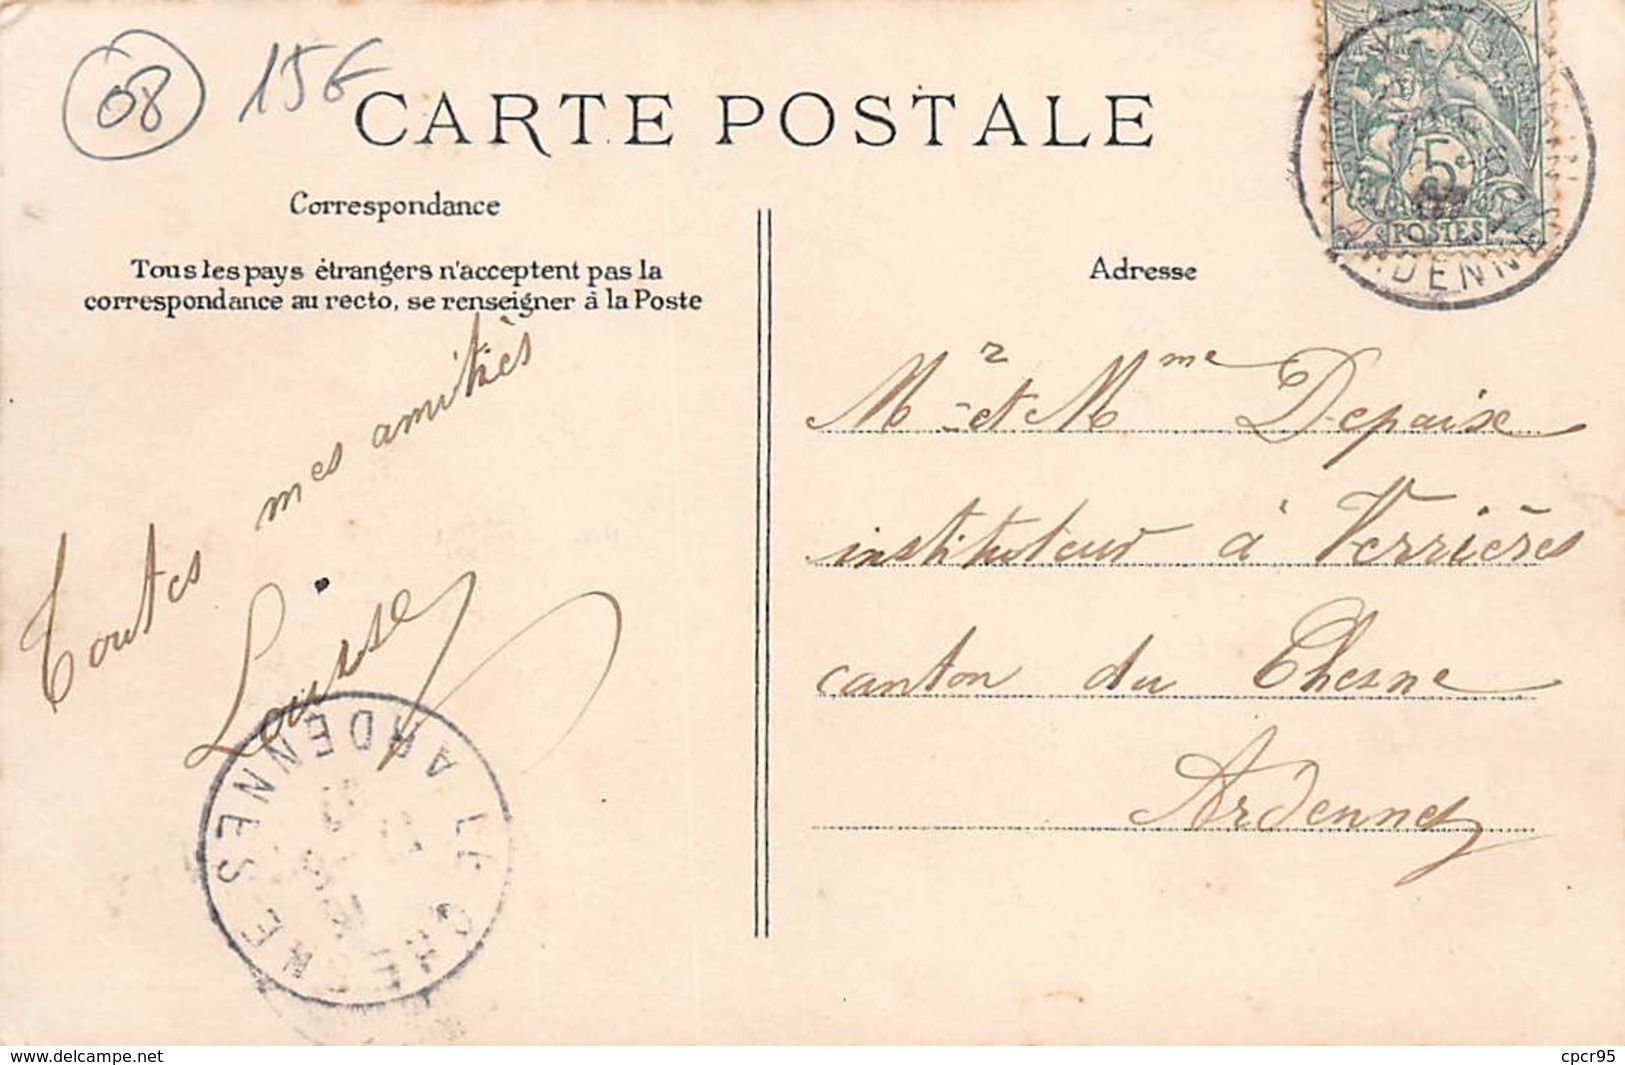 08 15€
CARTE POSTALE
Correspondance
Tous les pays étrangers n'acceptent pas la
correspondance au recto, se renseigner à la Poste
Toutes mes amitiés
Louise
LE CHESNE
ARDENNES
5c
POSTES
ARDENNES
Adresse
Mr et Mme Depaix
instituteur à Verrières
canton du Chesne
Ardennes
www.delcampe.net
cpcr95